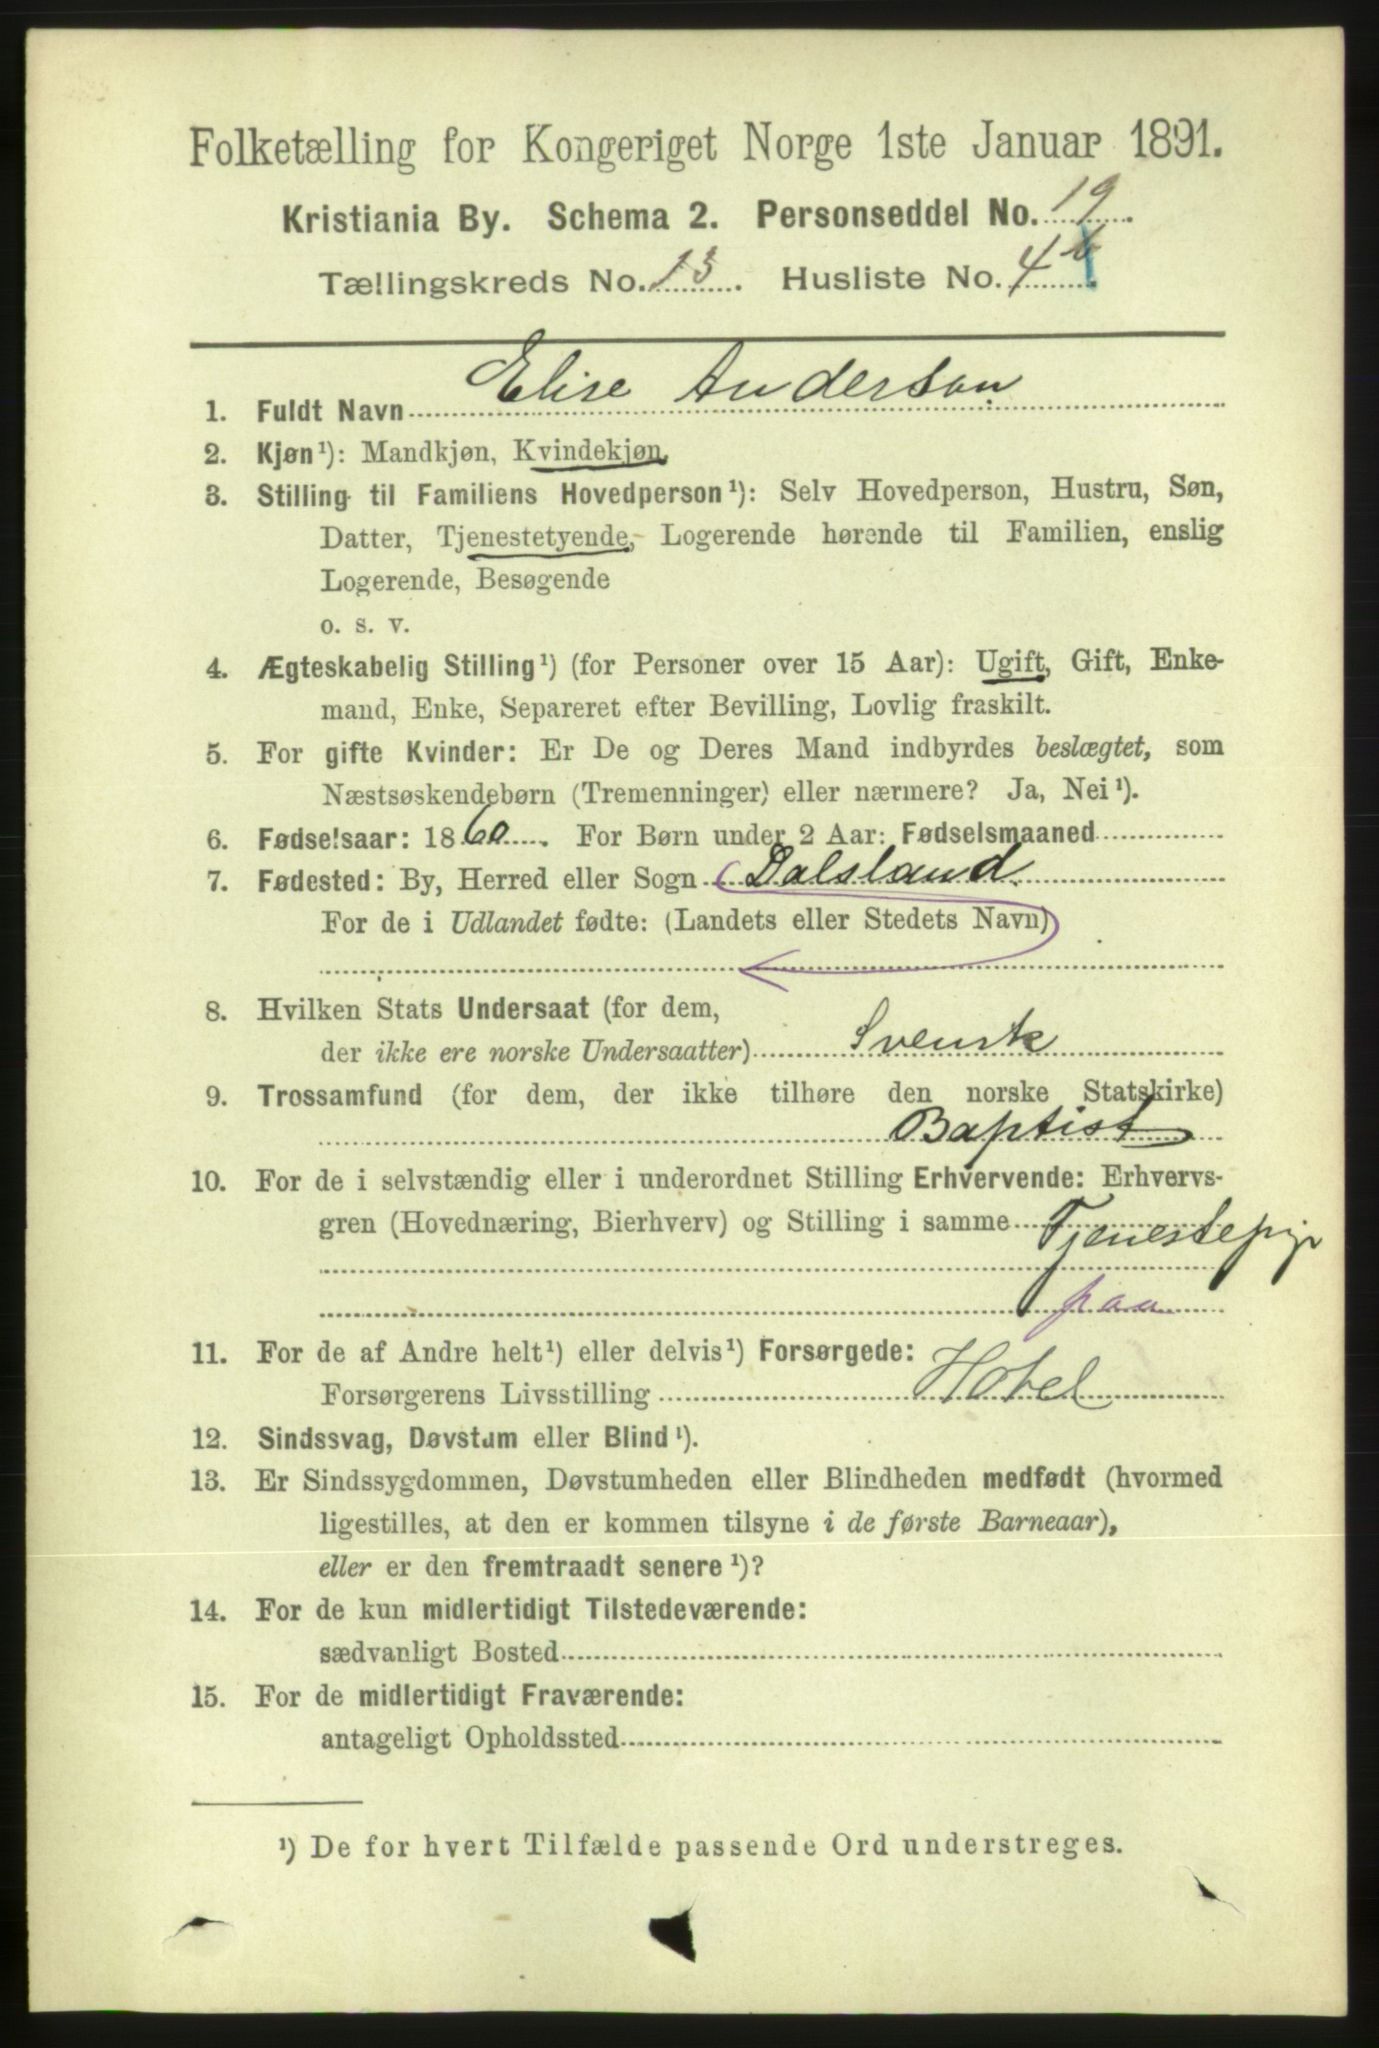 Folketælling for Kongeriget Norge 1ste Januar 1891.
Kristiania By. Schema 2. Personseddel No. 19.
Tællingskreds No. 13. Husliste No. 4b.
1. Fuldt Navn Elise Anderson
2. Kjøn¹): Mandkjøn, Kvindekjøn.
3. Stilling til Familiens Hovedperson¹): Selv Hovedperson, Hustru, Søn,
Datter, Tjenestetyende, Logerende hørende til Familien, enslig
Logerende, Besøgende
o. s. v.
4. Ægteskabelig Stilling¹) (for Personer over 15 Aar): Ugift, Gift, Enke-
mand, Enke, Separeret efter Bevilling, Lovlig fraskilt.
5. For gifte Kvinder: Er De og Deres Mand indbyrdes beslægtet, som
Næstsøskendebørn (Tremenninger) eller nærmere? Ja, Nei¹).
6. Fødselsaar: 1860. For Børn under 2 Aar: Fødselsmaaned
7. Fødested: By, Herred eller Sogn Dalsland
For de i Udlandet fødte: (Landets eller Stedets Navn)
8. Hvilken Stats Undersaat (for dem,
der ikke ere norske Undersaatter) Svensk
9. Trossamfund (for dem, der ikke tilhøre den norske Statskirke)
Baptist
10. For de i selvstændig eller i underordnet Stilling Erhvervende: Erhvervs-
gren (Hovednæring, Bierhverv) og Stilling i samme Tjenestepige
paa
11. For de af Andre helt¹) eller delvis¹) Forsørgede:
Forsørgerens Livsstilling Hotel
12. Sindssvag, Døvstum eller Blind¹).
13. Er Sindssygdommen, Døvstumheden eller Blindheden medfødt (hvormed
ligestilles, at den er kommen tilsyne i de første Barneaar),
eller er den fremtraadt senere¹)?
14. For de kun midlertidigt Tilstedeværende:
sædvanligt Bosted
15. For de midlertidigt Fraværende:
antageligt Opholdssted
¹) De for hvert Tilfælde passende Ord understreges.